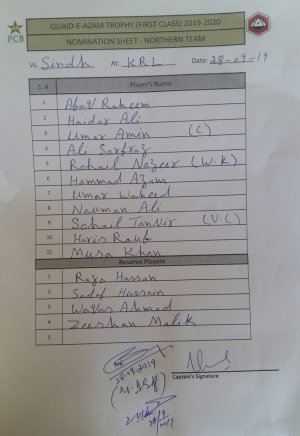 PCB
QUAID-E-AZAM TROPHY (FIRST CLASS) 2019-2020
NOMINATION SHEET - NORTHERN TEAM
Vs. Sindh At: KRL Date: 28-09-19
S. # Player's Name
1 Afaq Raheem
2 Haidar Ali
3 Umar Amin (C)
4 Ali Sarfraz
5 Rohail Nazeer (W.K)
6 Hammad Azam
7 Umar Waheed
8 Nauman Ali
9 Sohail Tanvir (V.C)
10 Haris Rauf
11 Musa Khan
Reserve Players
1 Raza Hassan
2 Sadaf Hussain
3 Waqas Ahmad
4 Zeeshan Malik
5
28.09.2019
Captain's Signature